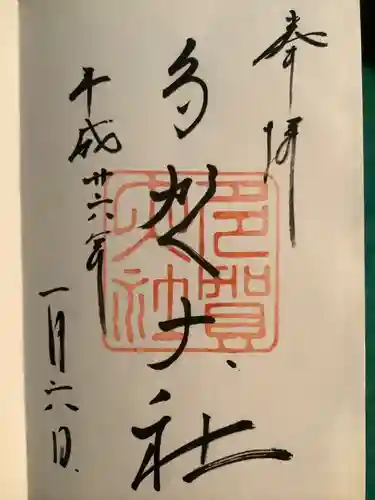 奉拝
多賀大社
平成廿六年
一月六日
多賀大社